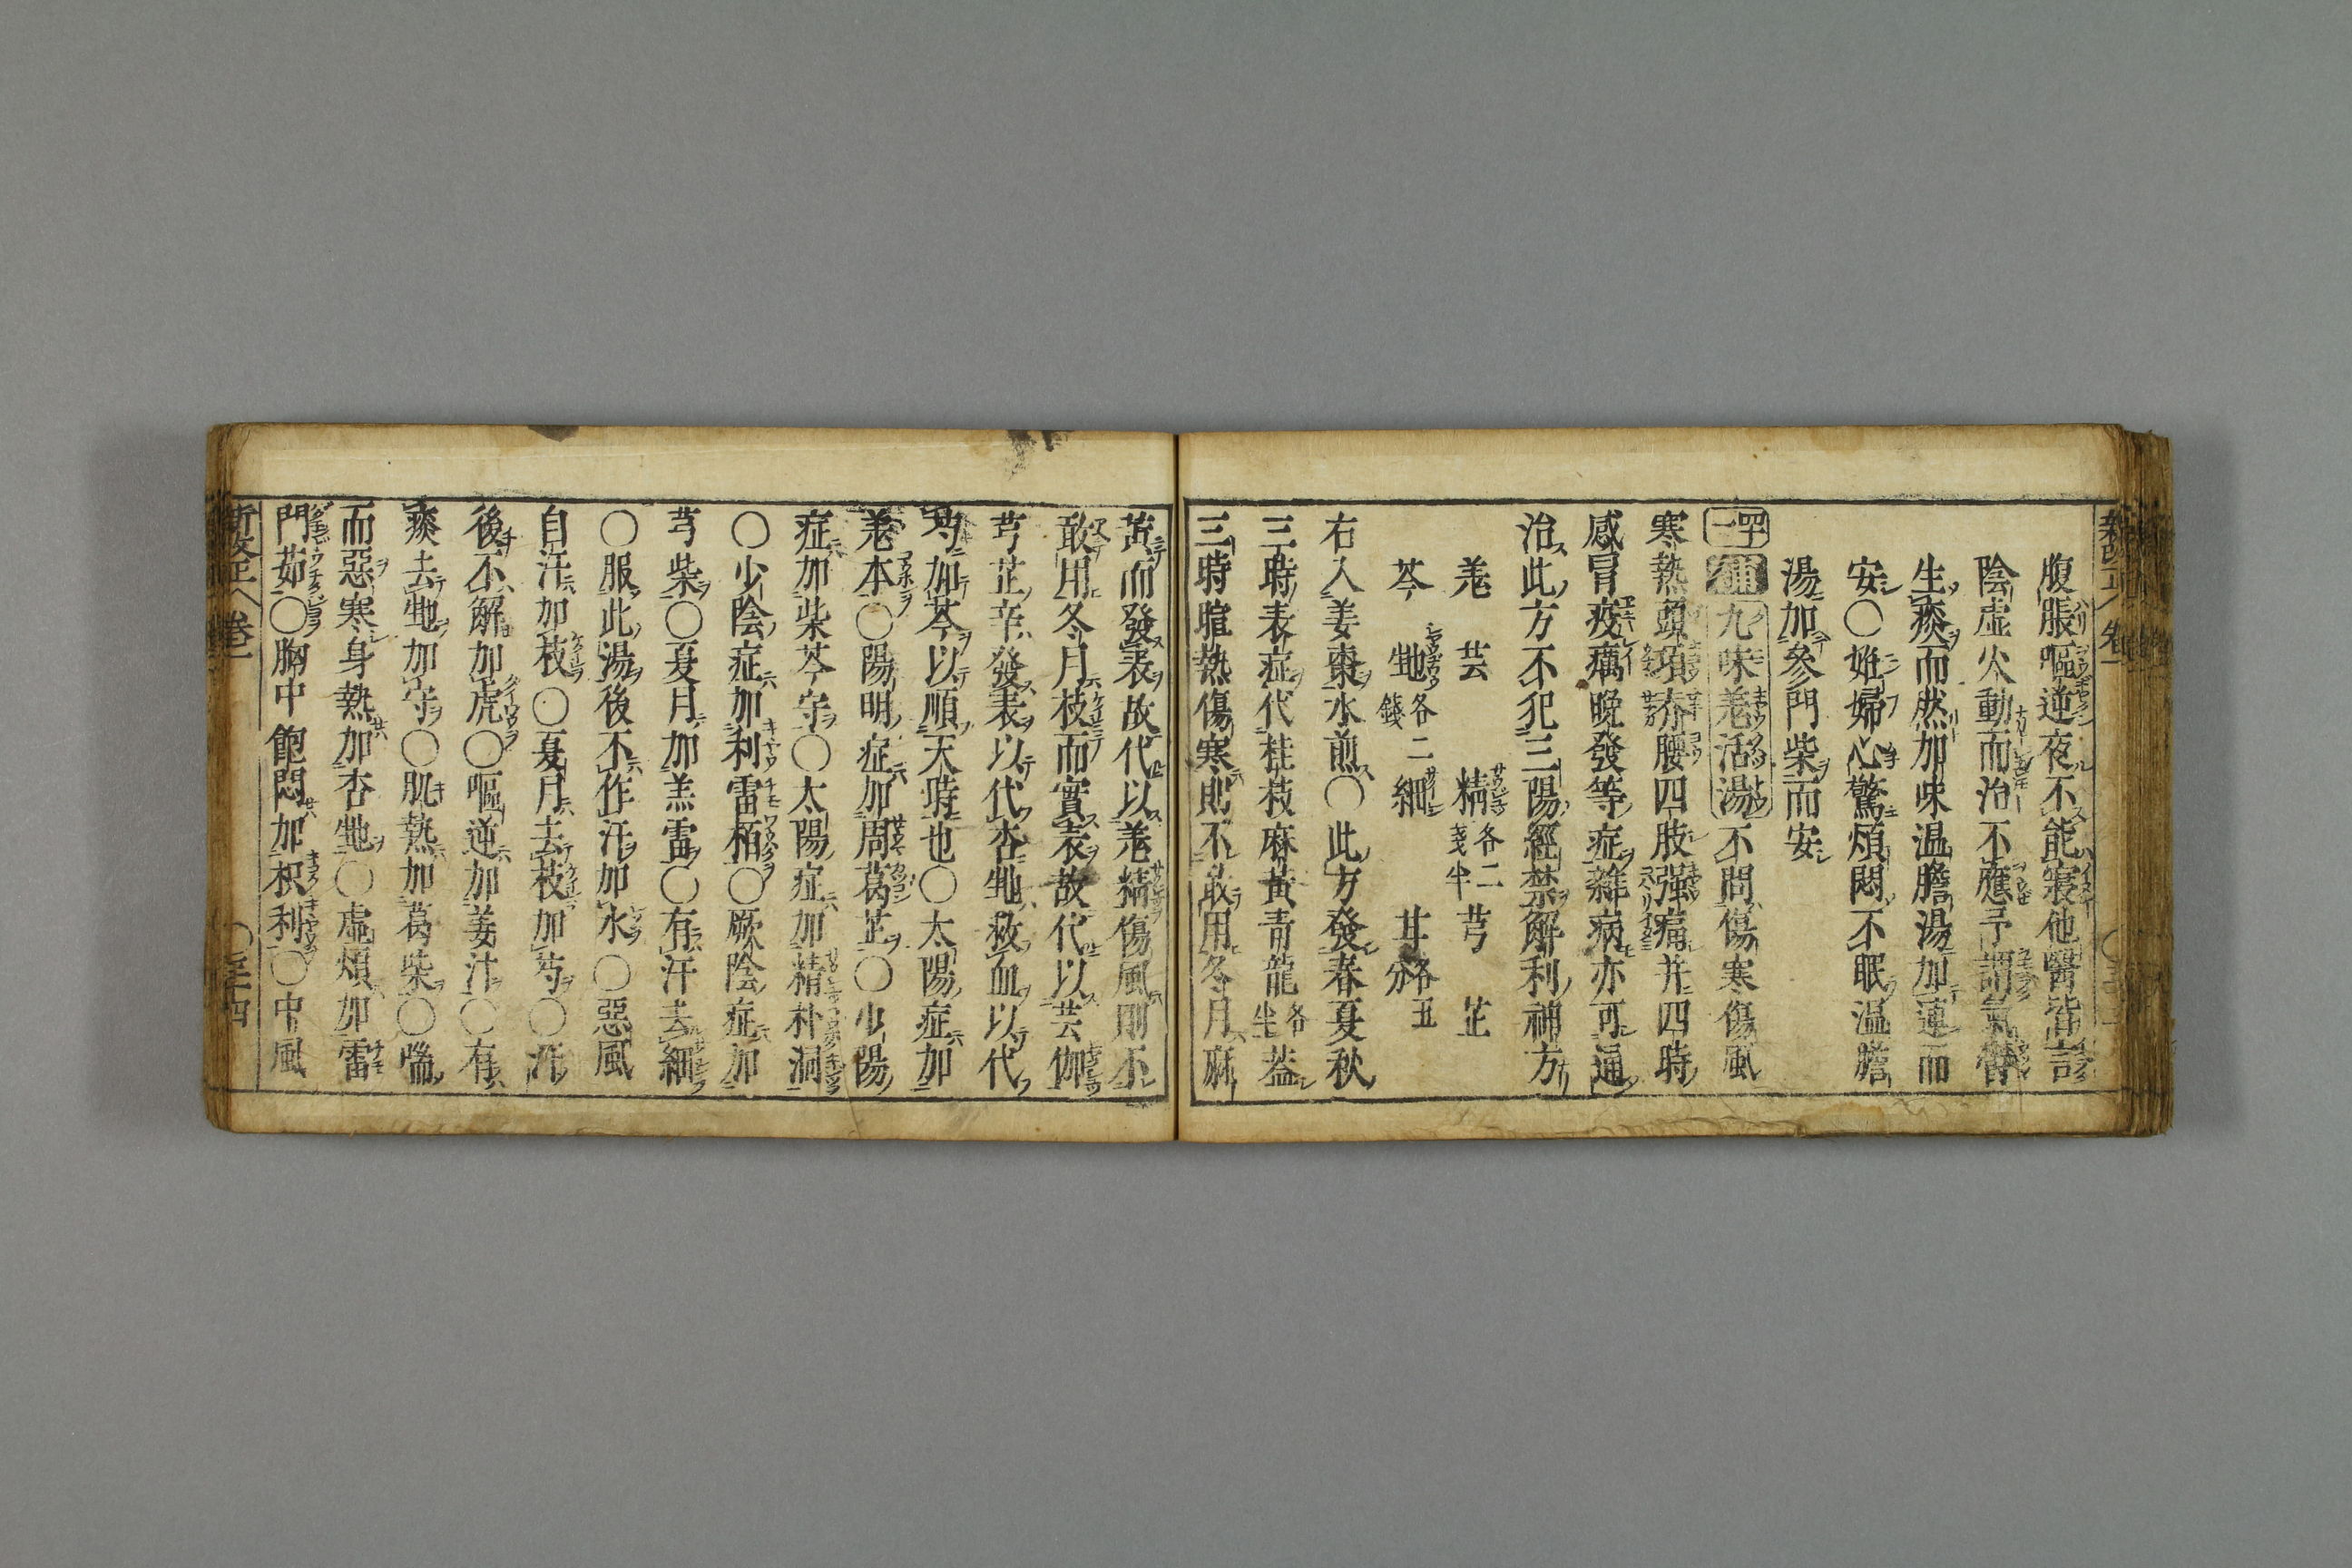 腹脹嘔逆夜不能寢他醫皆診
陰虛火動而治不應予謂氣鬱
生痰而然加味温膽湯加連而
安〇姙婦心驚煩悶不眠温膽
湯加參門柴而安
九味羗活湯不問傷寒傷風
寒熱頭項脊腰四肢强痛并四時
感冒疫癘晚發等症雜病亦可通
治此方不犯三陽經禁解利神方
羗 芸 精各二戔半 芎 芷
芩 𤵜各二錢 細 甘各五分
右入姜棗水煎〇此方發春夏秋
三時表症代桂枝麻黃青龍各半蓋
三時暄熱傷寒則不敢用冬月麻
黄而發表故代以羗精傷風則不
敢用冬月枝而實表故代以芸伽
芎芷辛發表以代杏 救血以代
芍加芩以順天時也〇太陽症加
羗本〇陽明症加周葛芷〇少陽
症加柴芩守〇太陽症加精朴洞
〇少陰症加利雷栢〇厥陰症加
芎柴〇夏月加羔雷〇有汗去細
〇服此湯後不作汗加水〇惡風
自汗加枝〇夏月去枝加芍〇汗
後不解加虎〇嘔逆加姜汁〇有
痰去 加守〇肌熱加葛柴〇喘
而惡寒身熱加杏 〇虛煩加雷
門茹〇胸中飽悶加枳利〇中風
卷一